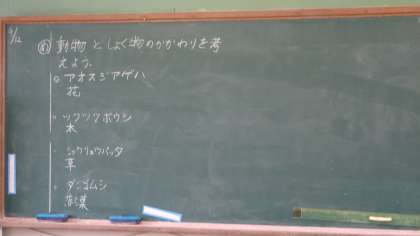 9/12
め 動物としょく物のかかわりを考
えよう。
アオスジアゲハ
花
ツクツクボウシ
木
ショウリョウバッタ
草
ダンゴムシ
落葉